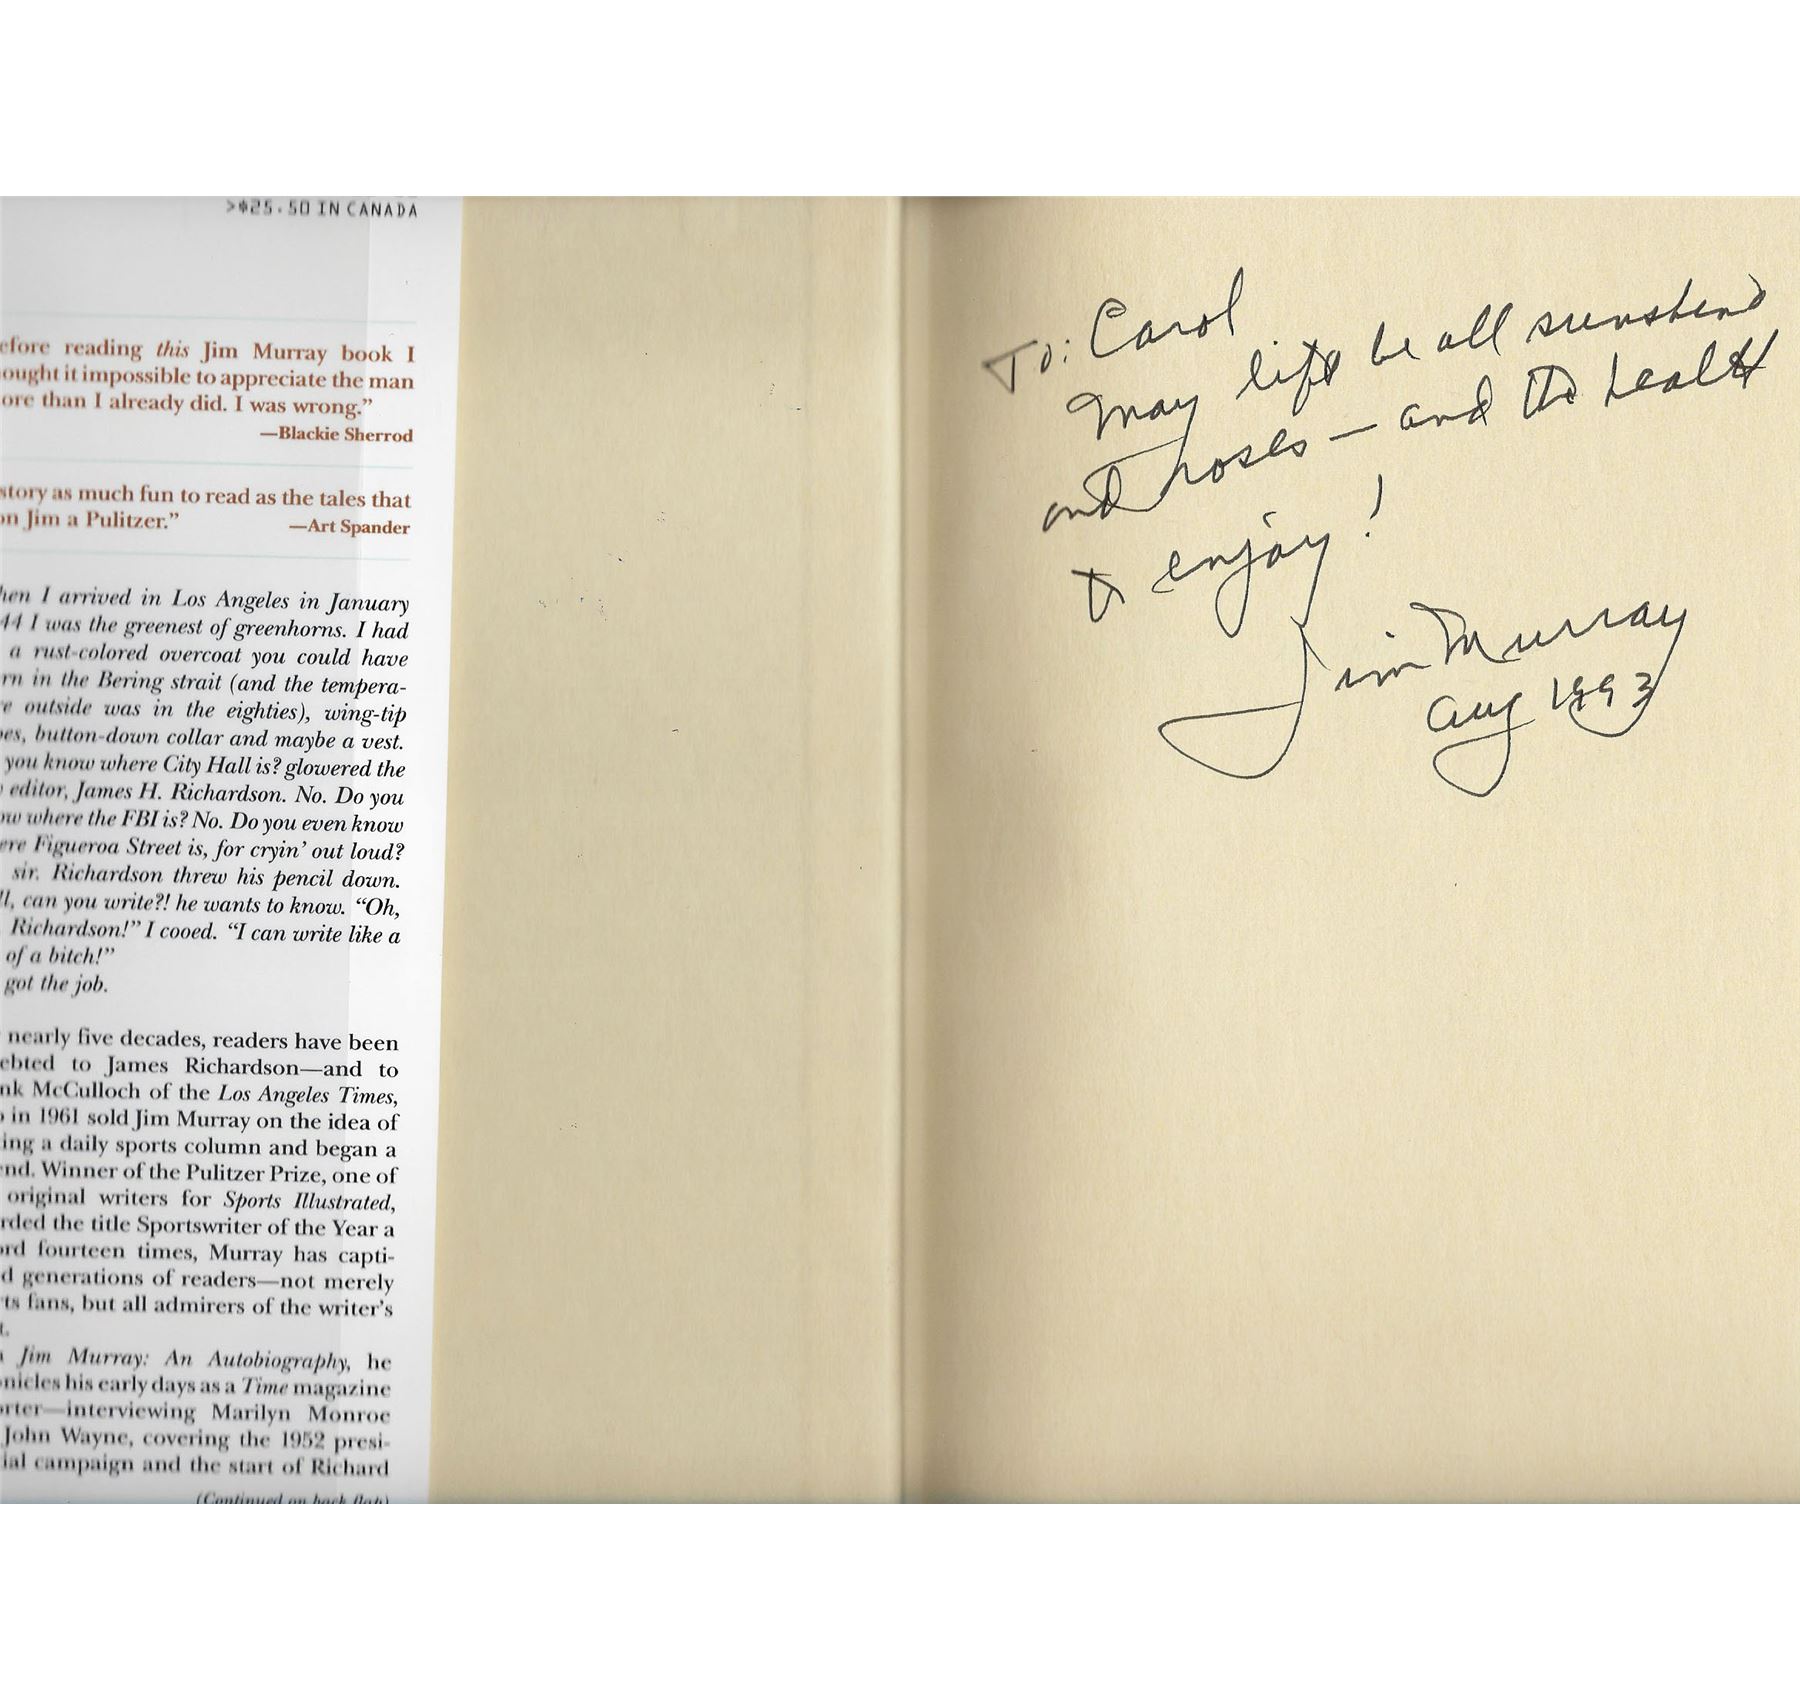 >$25.50 IN CANADA
efore reading this Jim Murray book I
ought it impossible to appreciate the man
ore than I already did. I was wrong.”
—Blackie Sherrod
story as much fun to read as the tales that
on Jim a Pulitzer.”
—Art Spander
hen I arrived in Los Angeles in January
44 I was the greenest of greenhorns. I had
a rust-colored overcoat you could have
rn in the Bering strait (and the tempera-
e outside was in the eighties), wing-tip
oes, button-down collar and maybe a vest.
you know where City Hall is? glowered the
editor, James H. Richardson. No. Do you
ow where the FBI is? No. Do you even know
ere Figueroa Street is, for cryin’ out loud?
sir. Richardson threw his pencil down.
ll, can you write?! he wants to know. “Oh,
Richardson!” I cooed. “I can write like a
of a bitch!”
got the job.
nearly five decades, readers have been
ebted to James Richardson—and to
nk McCulloch of the Los Angeles Times,
o in 1961 sold Jim Murray on the idea of
ing a daily sports column and began a
end. Winner of the Pulitzer Prize, one of
original writers for Sports Illustrated,
rded the title Sportswriter of the Year a
ord fourteen times, Murray has capti-
d generations of readers—not merely
ts fans, but all admirers of the writer’s
t.
n Jim Murray: An Autobiography, he
onicles his early days as a Time magazine
orter—interviewing Marilyn Monroe
John Wayne, covering the 1952 presi-
ial campaign and the start of Richard
(Continued on back flap)
To: Carol
May life be all sunshine
and roses — and the health
to enjoy!
Jim Murray
Aug 1993